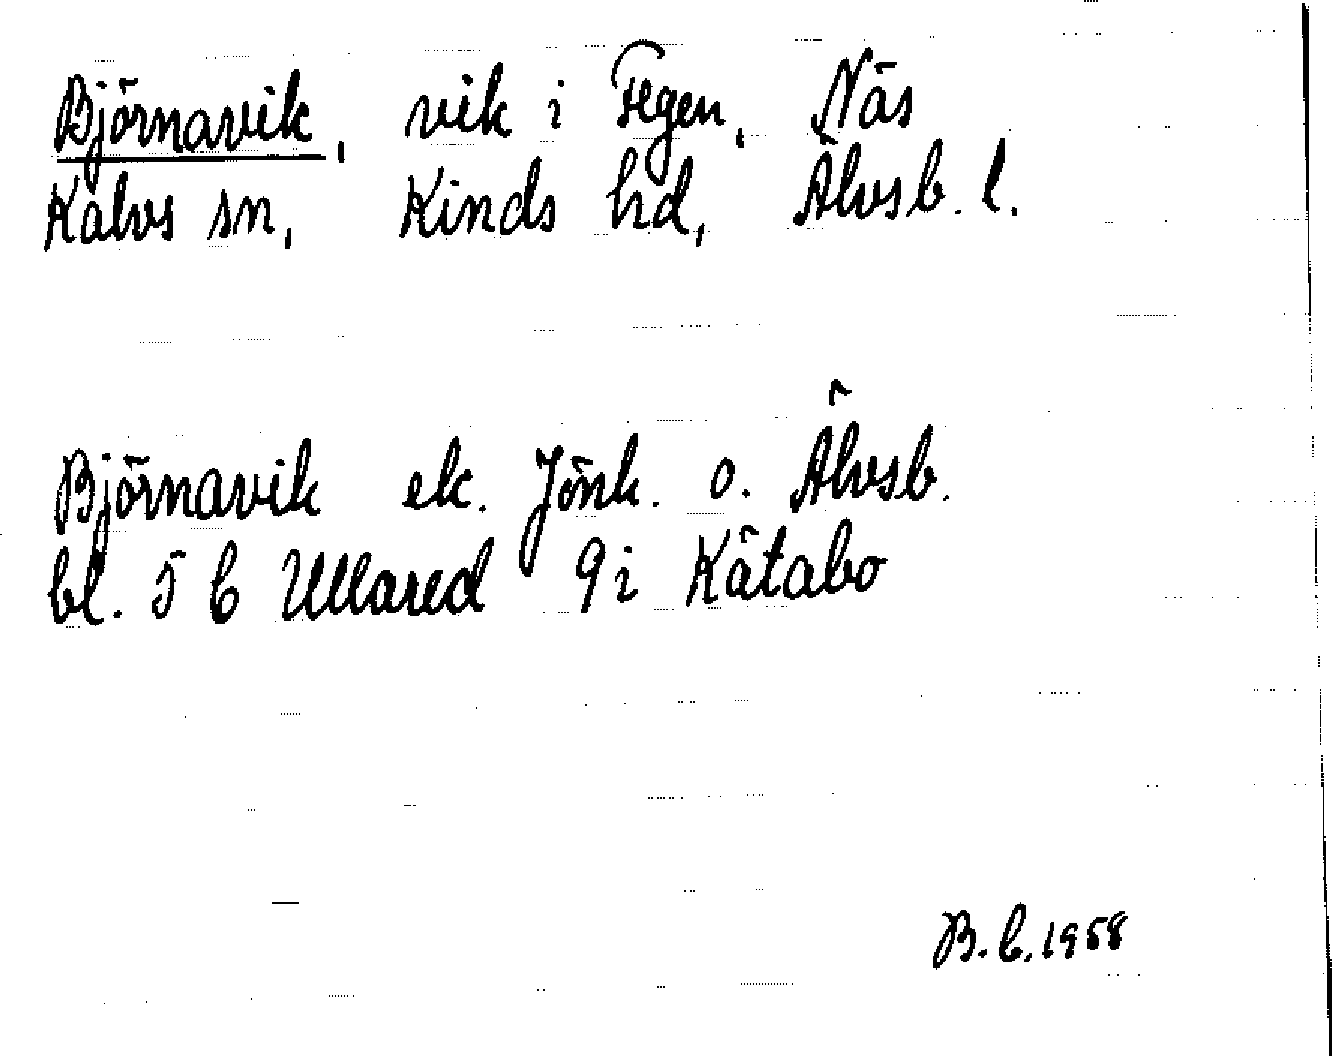 Björnavik, vik i Fegen, Näs
Kalvs sn, Kinds hd, Älvsb. l.
Björnavik ek. Jönk. o. Älvsb.
bl. 5 C Ullared 9i Kätabo
B.C. 1958